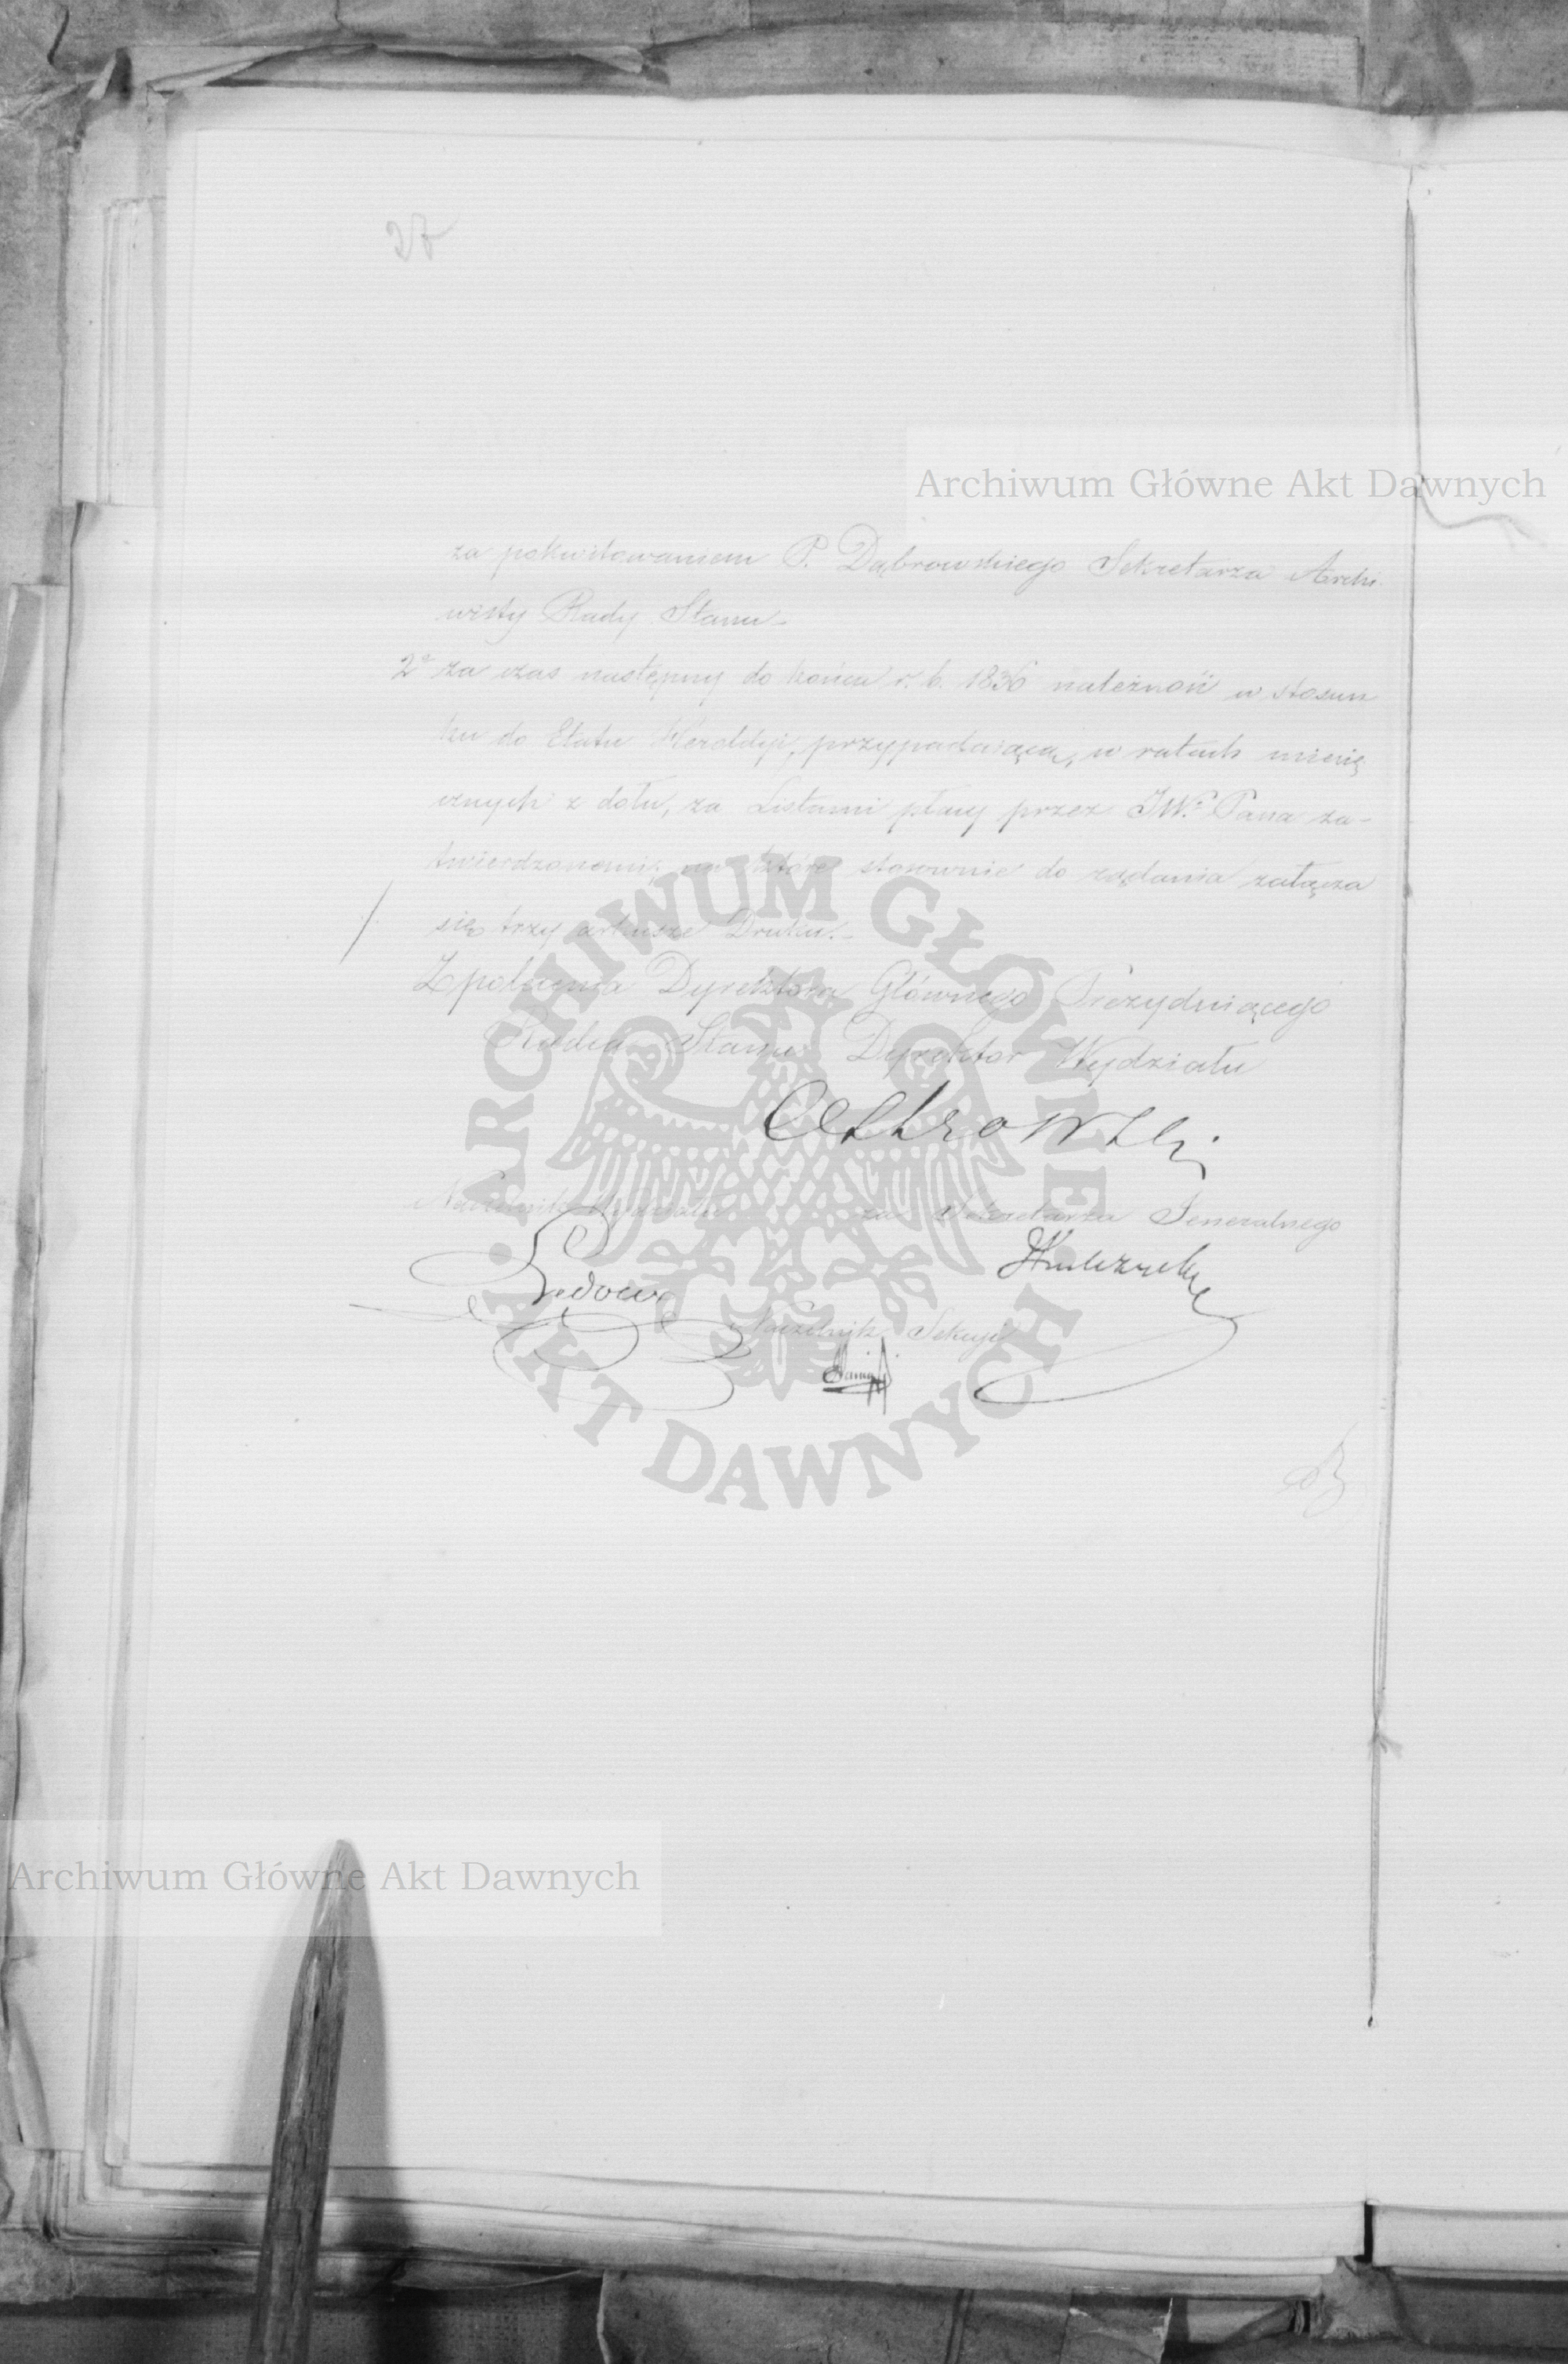 27
Archiwum Główne Akt Dawnych
za pokwitowaniem P. Dąbrowskiego Sekretarza Archi-
wisty Rady Stanu.-
2º za czas następny do końca r. b. 1836 należność w stosun
ku do Etatu Heroldyi, przypadaiącą, w ratach miesię
cznych z dołu, za Listami płacy przez JWº Pana za-
twierdzonemi; na które stosownie do żądania załącza
się trzy arkusze Druku.-
Z polecenia Dyrektora Głównego Prezyduiącego
Radca Stanu Dyrektor Wydziału
Naczelnik Wydziału za Sekretarza Jeneralnego
Naczelnik Sekcyi
ARCHIWUM GŁÓWNE AKT DAWNYCH
Archiwum Główne Akt Dawnych